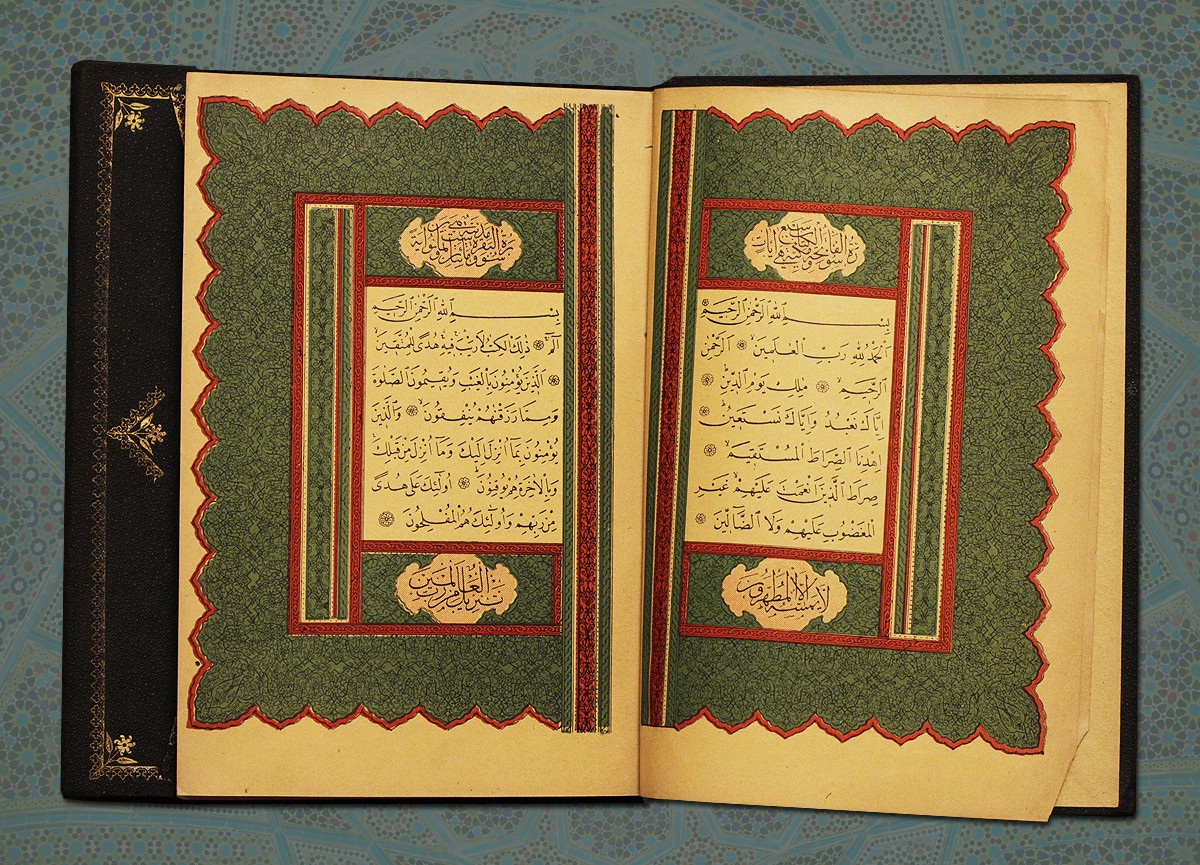 سورة الفاتحة الكتاب سبع آيات
بِسْمِ اللّٰهِ الرَّحْمٰنِ الرَّحِيمِ
اَلْحَمْدُ لِلّٰهِ رَبِّ الْعَالَمِينَ ۝ اَلرَّحْمٰنِ
الرَّحِيمِ ۝ مٰلِكِ يَوْمِ الدِّينِ ۝
اِيَّاكَ نَعْبُدُ وَاِيَّاكَ نَسْتَعِينُ ۝
اِهْدِنَا الصِّرَاطَ الْمُسْتَقِيمَ ۝
صِرَاطَ الَّذِينَ اَنْعَمْتَ عَلَيْهِمْ غَيْرِ
الْمَغْضُوبِ عَلَيْهِمْ وَلَا الضَّالِّينَ ۝
لا يمسه الا المطهرون
سورة البقرة مدنية
بِسْمِ اللّٰهِ الرَّحْمٰنِ الرَّحِيمِ
الٓمٓ ۝ ذٰلِكَ الْكِتٰبُ لَا رَيْبَ فِيهِ هُدًى لِلْمُتَّقِينَ
۝ اَلَّذِينَ يُؤْمِنُونَ بِالْغَيْبِ وَيُقِيمُونَ الصَّلٰوةَ
وَمِمَّا رَزَقْنٰهُمْ يُنْفِقُونَ ۝ وَالَّذِينَ
يُؤْمِنُونَ بِمَا اُنْزِلَ اِلَيْكَ وَمَا اُنْزِلَ مِنْ قَبْلِكَ
وَبِالْاٰخِرَةِ هُمْ يُوقِنُونَ ۝ اُولٰٓئِكَ عَلٰى هُدًى
مِنْ رَبِّهِمْ وَاُولٰٓئِكَ هُمُ الْمُفْلِحُونَ ۝
تنزيل من رب العالمين